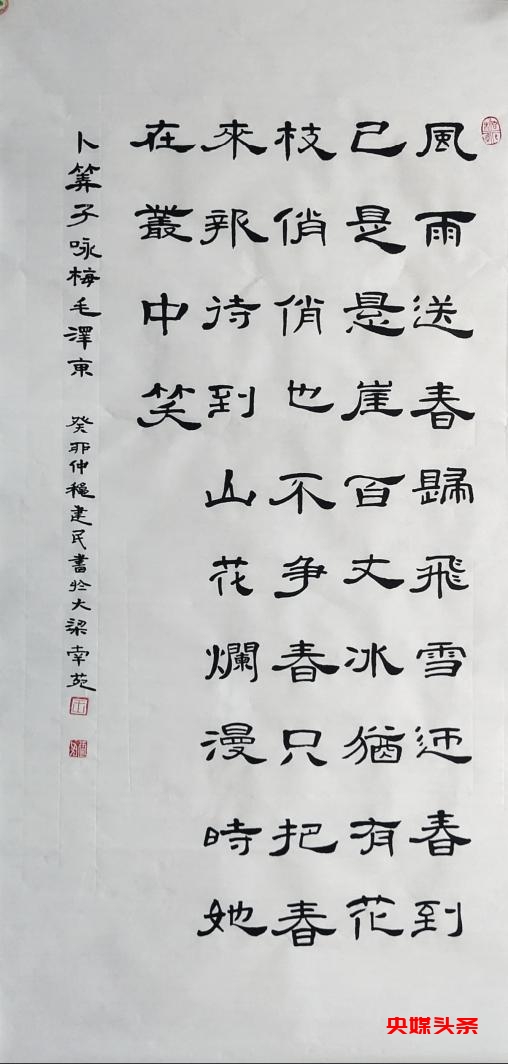 風雨送春歸飛雪迎春到
已是悬崖百丈冰猶有花
枝俏俏也不争春只把春
來報待到山花爛漫時她
在叢中笑
卜筭子咏梅毛澤東 癸卯仲穐建民書於大梁苑
央媒头条